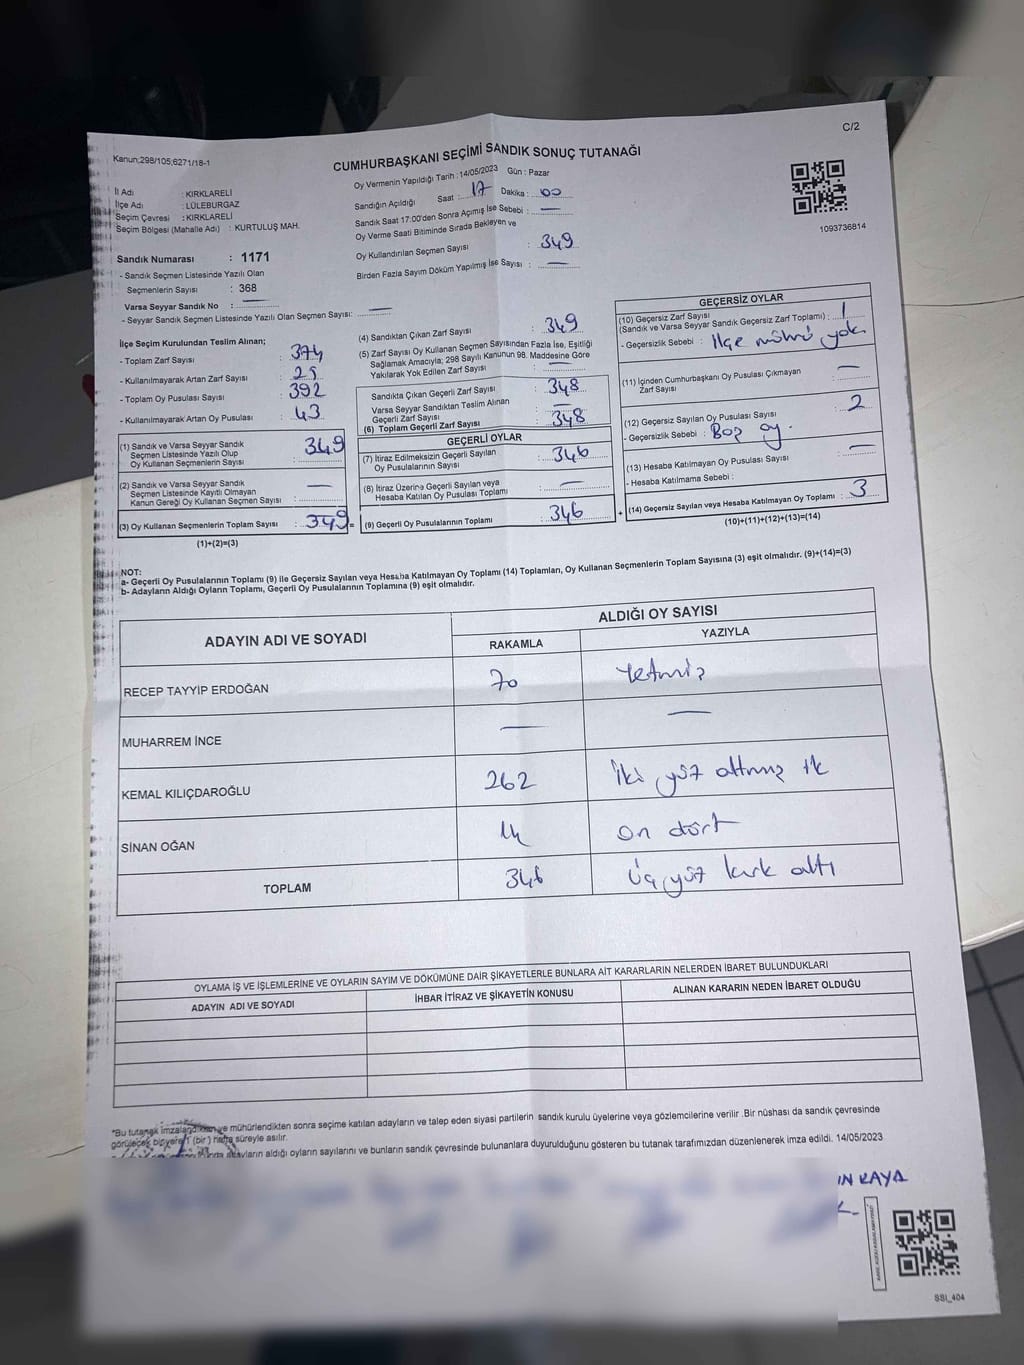 C/2
Kanun;298/105;6271/18-1
CUMHURBAŞKANI SEÇİMİ SANDIK SONUÇ TUTANAĞI
İl Adı : KIRKLARELİ
İlçe Adı : LÜLEBURGAZ
Seçim Çevresi : KIRKLARELİ
Seçim Bölgesi (Mahalle Adı) : KURTULUŞ MAH.
Oy Vermenin Yapıldığı Tarih : 14/05/2023 Gün : Pazar
Sandığın Açıldığı Saat : 17 Dakika : 00
Sandık Saat 17:00'den Sonra Açımış İse Sebebi : —
Oy Verme Saati Bitiminde Sırada Bekleyen ve
Oy Kullandırılan Seçmen Sayısı : 349
Birden Fazla Sayım Döküm Yapılmış İse Sayısı : —
1093736814
Sandık Numarası : 1171
- Sandık Seçmen Listesinde Yazılı Olan
Seçmenlerin Sayısı : 368
Varsa Seyyar Sandık No : —
- Seyyar Sandık Seçmen Listesinde Yazılı Olan Seçmen Sayısı: —
İlçe Seçim Kurulundan Teslim Alınan;
- Toplam Zarf Sayısı : 374
- Kullanılmayarak Artan Zarf Sayısı : 25
- Toplam Oy Pusulası Sayısı : 392
- Kullanılmayarak Artan Oy Pusulası : 43
(1) Sandık ve Varsa Seyyar Sandık
Seçmen Listesinde Yazılı Olup
Oy Kullanan Seçmenlerin Sayısı : 349
(2) Sandık ve Varsa Seyyar Sandık
Seçmen Listesinde Kayıtlı Olmayan
Kanun Gereği Oy Kullanan Seçmen Sayısı : —
(3) Oy Kullanan Seçmenlerin Toplam Sayısı : 349 =
(1)+(2)=(3)
(4) Sandıktan Çıkan Zarf Sayısı : 349
(5) Zarf Sayısı Oy Kullanan Seçmen Sayısından Fazla İse, Eşitliği
Sağlamak Amacıyla; 298 Sayılı Kanunun 98. Maddesine Göre
Yakılarak Yok Edilen Zarf Sayısı : —
Sandıkta Çıkan Geçerli Zarf Sayısı : 348
Varsa Seyyar Sandıktan Teslim Alınan
Geçerli Zarf Sayısı : —
(6) Toplam Geçerli Zarf Sayısı : 348
GEÇERLİ OYLAR
(7) İtiraz Edilmeksizin Geçerli Sayılan
Oy Pusulalarının Sayısı : 346
(8) İtiraz Üzerine Geçerli Sayılan veya
Hesaba Katılan Oy Pusulası Toplamı : —
(9) Geçerli Oy Pusulalarının Toplamı : 346 +
GEÇERSİZ OYLAR
(10) Geçersiz Zarf Sayısı
(Sandık ve Varsa Seyyar Sandık Geçersiz Zarf Toplamı) : 1
- Geçersizlik Sebebi : İlçe mührü yok.
(11) İçinden Cumhurbaşkanı Oy Pusulası Çıkmayan
Zarf Sayısı : —
(12) Geçersiz Sayılan Oy Pusulası Sayısı : 2
- Geçersizlik Sebebi : Boş oy.
(13) Hesaba Katılmayan Oy Pusulası Sayısı : —
- Hesaba Katılmama Sebebi :
(14) Geçersiz Sayılan veya Hesaba Katılmayan Oy Toplamı : 3
(10)+(11)+(12)+(13)=(14)
NOT:
a- Geçerli Oy Pusulalarının Toplamı (9) ile Geçersiz Sayılan veya Hesaba Katılmayan Oy Toplamı (14) Toplamları, Oy Kullanan Seçmenlerin Toplam Sayısına (3) eşit olmalıdır. (9)+(14)=(3)
b- Adayların Aldığı Oyların Toplamı, Geçerli Oy Pusulalarının Toplamına (9) eşit olmalıdır.
ADAYIN ADI VE SOYADI ALDIĞI OY SAYISI
RAKAMLA YAZIYLA
RECEP TAYYİP ERDOĞAN 70 Yetmiş
MUHARREM İNCE — —
KEMAL KILIÇDAROĞLU 262 İki yüz altmış iki
SİNAN OĞAN 14 On dört
TOPLAM 346 Üç yüz kırk altı
OYLAMA İŞ VE İŞLEMLERİNE VE OYLARIN SAYIM VE DÖKÜMÜNE DAİR ŞİKAYETLERLE BUNLARA AİT KARARLARIN NELERDEN İBARET BULUNDUKLARI
ADAYIN ADI VE SOYADI İHBAR İTİRAZ VE ŞİKAYETİN KONUSU ALINAN KARARIN NEDEN İBARET OLDUĞU
*Bu tutanak imzalandıktan ve mühürlendikten sonra seçime katılan adayların ve talep eden siyasi partilerin sandık kurulu üyelerine veya gözlemcilerine verilir .Bir nüshası da sandık çevresinde
görülecek bir yere 1 (bir) hafta süreyle asılır.
adayların aldığı oyların sayılarını ve bunların sandık çevresinde bulunanlara duyurulduğunu gösteren bu tutanak tarafımızdan düzenlenerek imza edildi. 14/05/2023
IN KAYA
SSI_404